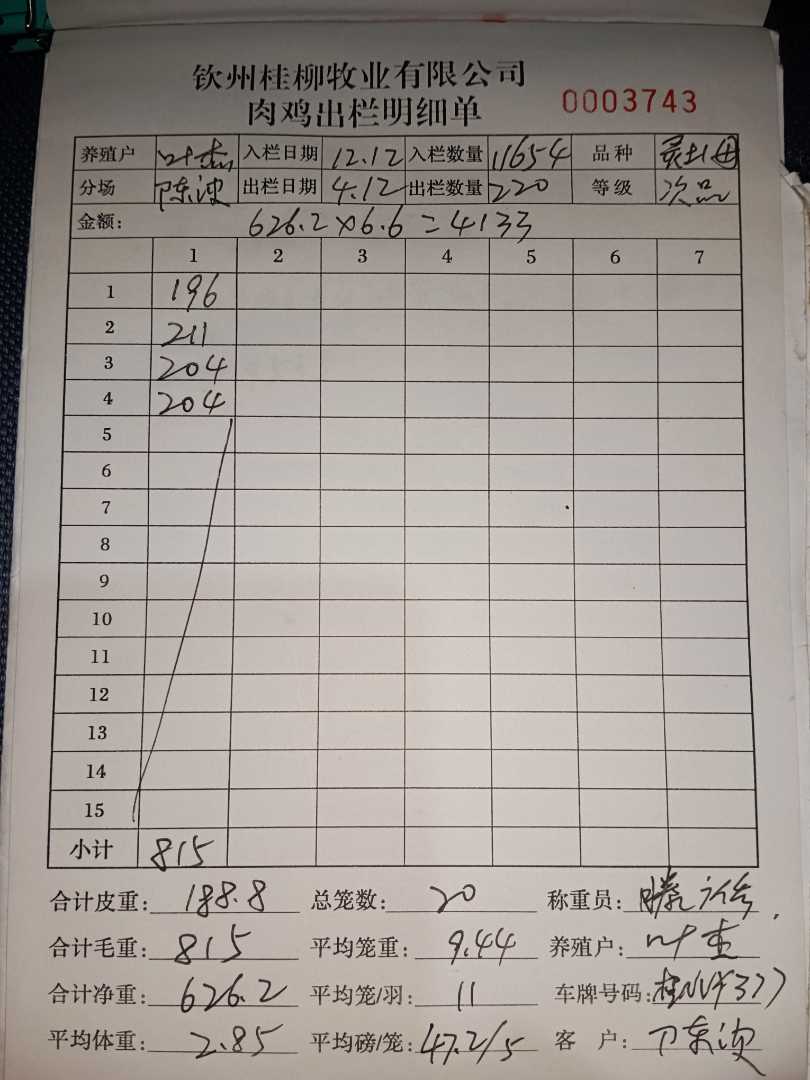 钦州桂柳牧业有限公司
肉鸡出栏明细单 0003743
养殖户 叶杰 入栏日期 12.12 入栏数量 11654 品种
分场 出栏日期 4.12 出栏数量 220 等级 次品
金额: 626.2×6.6=4133
1 2 3 4 5 6 7
1 196
2 211
3 204
4 204
5
6
7
8
9
10
11
12
13
14
15
小计 815
合计皮重: 188.8 总笼数: 20 称重员:
合计毛重: 815 平均笼重: 9.44 养殖户: 叶杰
合计净重: 626.2 平均笼/羽: 11 车牌号码:
平均体重: 2.85 平均磅/笼: 47.2/5 客 户: